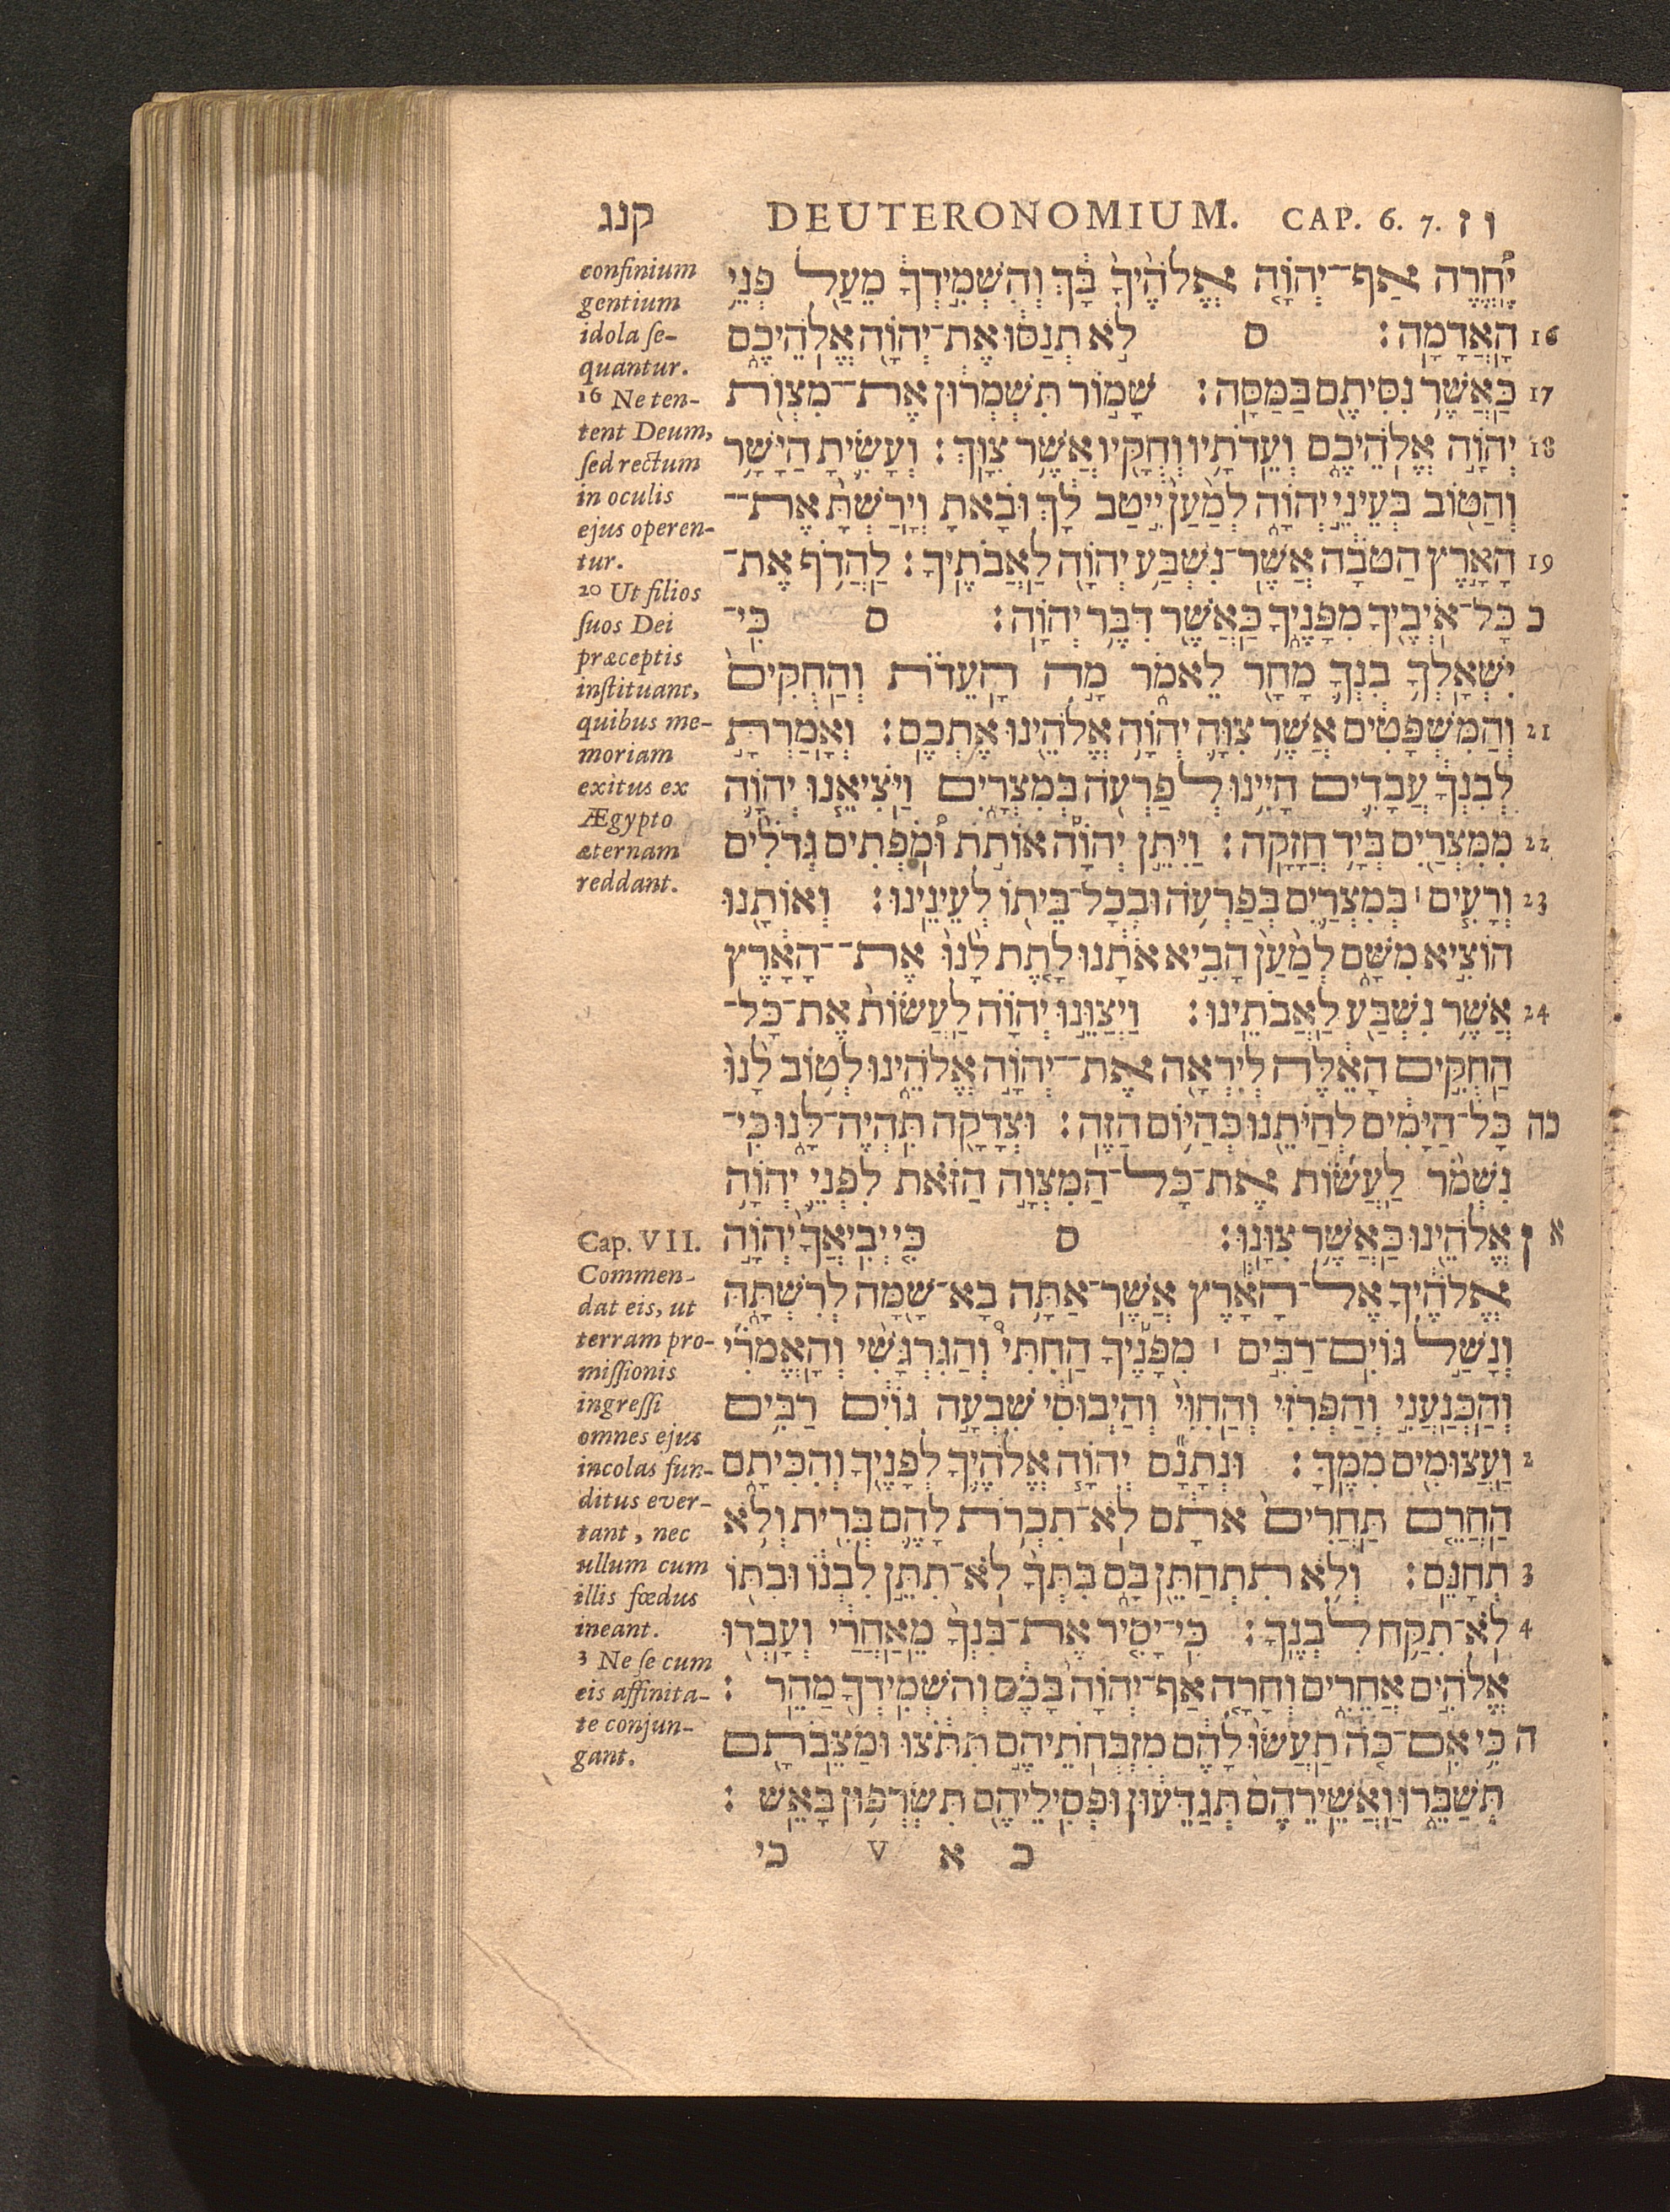 קנג DEUTERONOMIUM. CAP. 6. 7. ו ז
יֶ֠חֱרֶה אַף־יְהוָ֤ה אֱלֹהֶ֙יךָ֙ בָּ֔ךְ וְהִ֨שְׁמִ֣ידְךָ֔ מֵעַ֖ל פְּנֵ֥י
16 הָאֲדָמָֽה׃ ס לֹ֣א תְנַסּ֔וּ אֶת־יְהוָ֖ה אֱלֹהֵיכֶ֑ם
17 כַּאֲשֶׁ֥ר נִסִּיתֶ֖ם בַּמַּסָּֽה׃ שָׁמ֣וֹר תִּשְׁמְר֔וּן אֶת־מִצְוֺ֖ת
18 יְהוָ֣ה אֱלֹהֵיכֶ֑ם וְעֵדֹתָ֥יו וְחֻקָּ֖יו אֲשֶׁ֥ר צִוָּֽךְ׃ וְעָשִׂ֛יתָ הַיָּשָׁ֥ר
וְהַטּ֖וֹב בְּעֵינֵ֣י יְהוָ֑ה לְמַ֙עַן֙ יִ֣יטַב לָ֔ךְ וּבָ֗אתָ וְיָֽרַשְׁתָּ֙ אֶת־
19 הָאָ֣רֶץ הַטֹּבָ֔ה אֲשֶׁר־נִשְׁבַּ֥ע יְהוָ֖ה לַאֲבֹתֶֽיךָ׃ לַהֲדֹ֥ף אֶת־
כ כָּל־אֹיְבֶ֖יךָ מִפָּנֶ֑יךָ כַּאֲשֶׁ֖ר דִּבֶּ֥ר יְהוָֽה׃ ס כִּֽי־
יִשְׁאָלְךָ֥ בִנְךָ֛ מָחָ֖ר לֵאמֹ֑ר מָ֣ה הָעֵדֹ֗ת וְהַֽחֻקִּים֙
21 וְהַמִּשְׁפָּטִ֔ים אֲשֶׁ֥ר צִוָּ֛ה יְהוָ֥ה אֱלֹהֵ֖ינוּ אֶתְכֶֽם׃ וְאָמַרְתָּ֣
לְבִנְךָ֔ עֲבָדִ֛ים הָיִ֥ינוּ לְפַרְעֹ֖ה בְּמִצְרָ֑יִם וַיֹּצִיאֵ֧נוּ יְהוָ֛ה
22 מִמִּצְרַ֖יִם בְּיָ֥ד חֲזָקָֽה׃ וַיִּתֵּ֣ן יְהוָ֡ה אוֹתֹ֣ת וּ֠מֹפְתִים גְּדֹלִ֨ים
23 וְרָעִ֧ים ׀ בְּמִצְרַ֛יִם בְּפַרְעֹ֥ה וּבְכָל־בֵּית֖וֹ לְעֵינֵֽינוּ׃ וְאוֹתָ֖נוּ
הוֹצִ֣יא מִשָּׁ֑ם לְמַ֙עַן֙ הָבִ֣יא אֹתָ֔נוּ לָ֤תֶת לָ֙נוּ֙ אֶת־הָאָ֔רֶץ
24 אֲשֶׁ֥ר נִשְׁבַּ֖ע לַאֲבֹתֵֽינוּ׃ וַיְצַוֵּ֣נוּ יְהוָ֗ה לַעֲשׂוֹת֙ אֶת־כָּל־
הַחֻקִּ֣ים הָאֵ֔לֶּה לְיִרְאָ֖ה אֶת־יְהוָ֣ה אֱלֹהֵ֑ינוּ לְט֥וֹב לָ֙נוּ֙
כה כָּל־הַיָּמִ֔ים לְחַיֹּתֵ֖נוּ כְּהַיּ֥וֹם הַזֶּֽה׃ וּצְדָקָ֖ה תִּֽהְיֶה־לָּ֑נוּ כִּֽי־
נִשְׁמֹ֨ר לַעֲשׂ֜וֹת אֶת־כָּל־הַמִּצְוָ֣ה הַזֹּ֗את לִפְנֵ֛י יְהוָ֥ה
א ז אֱלֹהֵ֖ינוּ כַּאֲשֶׁ֥ר צִוָּֽנוּ׃ ס כִּ֤י יְבִֽיאֲךָ֙ יְהוָ֣ה
אֱלֹהֶ֔יךָ אֶל־הָאָ֕רֶץ אֲשֶׁר־אַתָּ֥ה בָא־שָׁ֖מָּה לְרִשְׁתָּ֑הּ
וְנָשַׁ֣ל גּוֹיִֽם־רַבִּ֣ים ׀ מִפָּנֶ֡יךָ הַֽחִתִּי֩ וְהַגִּרְגָּשִׁ֨י וְהָאֱמֹרִ֜י
וְהַכְּנַעֲנִ֣י וְהַפְּרִזִּ֗י וְהַֽחִוִּי֙ וְהַיְבוּסִ֔י שִׁבְעָ֣ה גוֹיִ֔ם רַבִּ֥ים
2 וַעֲצוּמִ֖ים מִמֶּֽךָּ׃ וּנְתָנָ֞ם יְהוָ֧ה אֱלֹהֶ֛יךָ לְפָנֶ֖יךָ וְהִכִּיתָ֑ם
הַחֲרֵ֤ם תַּחֲרִים֙ אֹתָ֔ם לֹא־תִכְרֹ֥ת לָהֶ֛ם בְּרִ֖ית וְלֹ֥א
3 תְחָנֵּֽם׃ וְלֹ֥א תִתְחַתֵּ֖ן בָּ֑ם בִּתְּךָ֙ לֹא־תִתֵּ֣ן לִבְנ֔וֹ וּבִתּ֖וֹ
4 לֹא־תִקַּ֥ח לִבְנֶֽךָ׃ כִּֽי־יָסִ֤יר אֶת־בִּנְךָ֙ מֵֽאַחֲרַ֔י וְעָבְד֖וּ
אֱלֹהִ֣ים אֲחֵרִ֑ים וְחָרָ֤ה אַף־יְהוָה֙ בָּכֶ֔ם וְהִשְׁמִידְךָ֖ מַהֵֽר׃
ה כִּֽי אִם־כֹּ֤ה תַעֲשׂוּ֙ לָהֶ֔ם מִזְבְּחֹתֵיהֶ֣ם תִּתֹּ֔צוּ וּמַצֵּבֹתָ֖ם
תְּשַׁבֵּ֑רוּ וַאֲשֵֽׁירֵהֶם֙ תְּגַדֵּע֔וּן וּפְסִילֵיהֶ֖ם תִּשְׂרְפ֥וּן בָּאֵֽשׁ׃
כ א V כי
confinium
gentium
idola ſe-
quantur.
16 Ne ten-
tent Deum,
ſed rectum
in oculis
ejus operen-
tur.
20 Ut filios
ſuos Dei
præceptis
inſtituant,
quibus me-
moriam
exitus ex
Ægypto
æternam
reddant.
Cap. VII.
Commen-
dat eis, ut
terram pro-
miſſionis
ingreſſi
omnes ejus
incolas fun-
ditus ever-
tant, nec
ullum cum
illis fœdus
ineant.
3 Ne ſe cum
eis affinita-
te conjun-
gant.